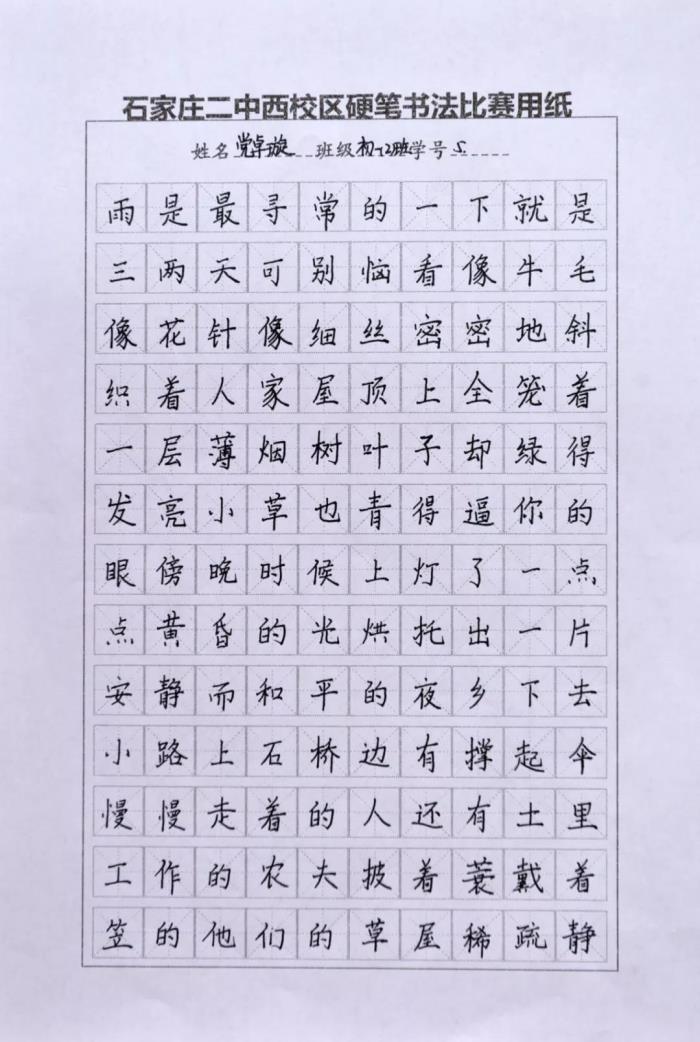 石家庄二中西校区硬笔书法比赛用纸
姓名 党卓璇 班级 初一12班 学号 5
雨是最寻常的一下就是
三两天可别恼看像牛毛
像花针像细丝密密地斜
织着人家屋顶上全笼着
一层薄烟树叶子却绿得
发亮小草也青得逼你的
眼傍晚时候上灯了一点
点黄昏的光烘托出一片
安静而和平的夜乡下去
小路上石桥边有撑起伞
慢慢走着的人还有土里
工作的农夫披着蓑戴着
笠的他们的草屋稀疏静